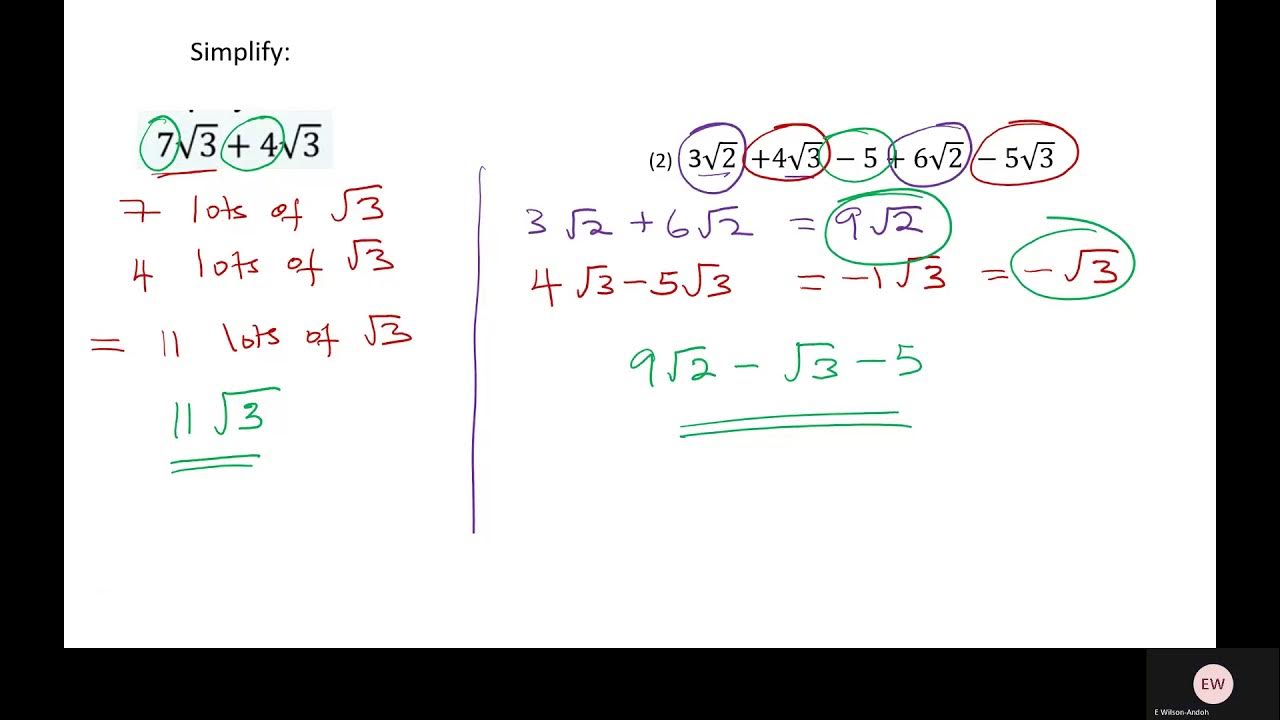 Simplify:
7√3 + 4√3
7 lots of √3
4 lots of √3
= 11 lots of √3
11√3
(2) 3√2 +4√3 − 5 + 6√2 − 5√3
3√2 + 6√2 = 9√2
4√3 − 5√3 = −1√3 = −√3
9√2 − √3 − 5
EW
E Wilson-Andoh